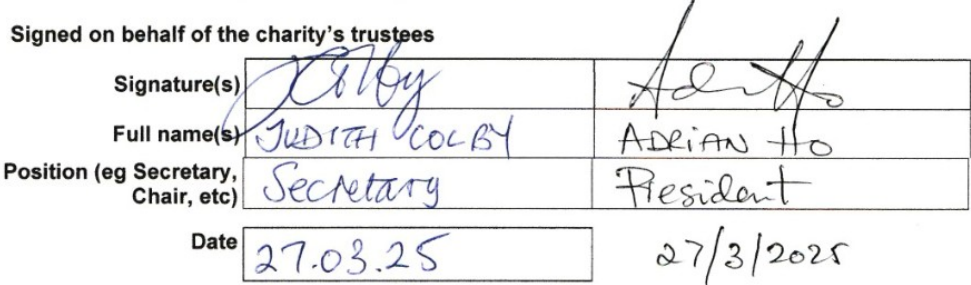 Signed on behalf of the charity's trustees
Signature(s) JColby Adrian Ho
Full name(s) JUDITH COLBY ADRIAN HO
Position (eg Secretary, Secretary President
Chair, etc)
Date 27.03.25 27/3/2025